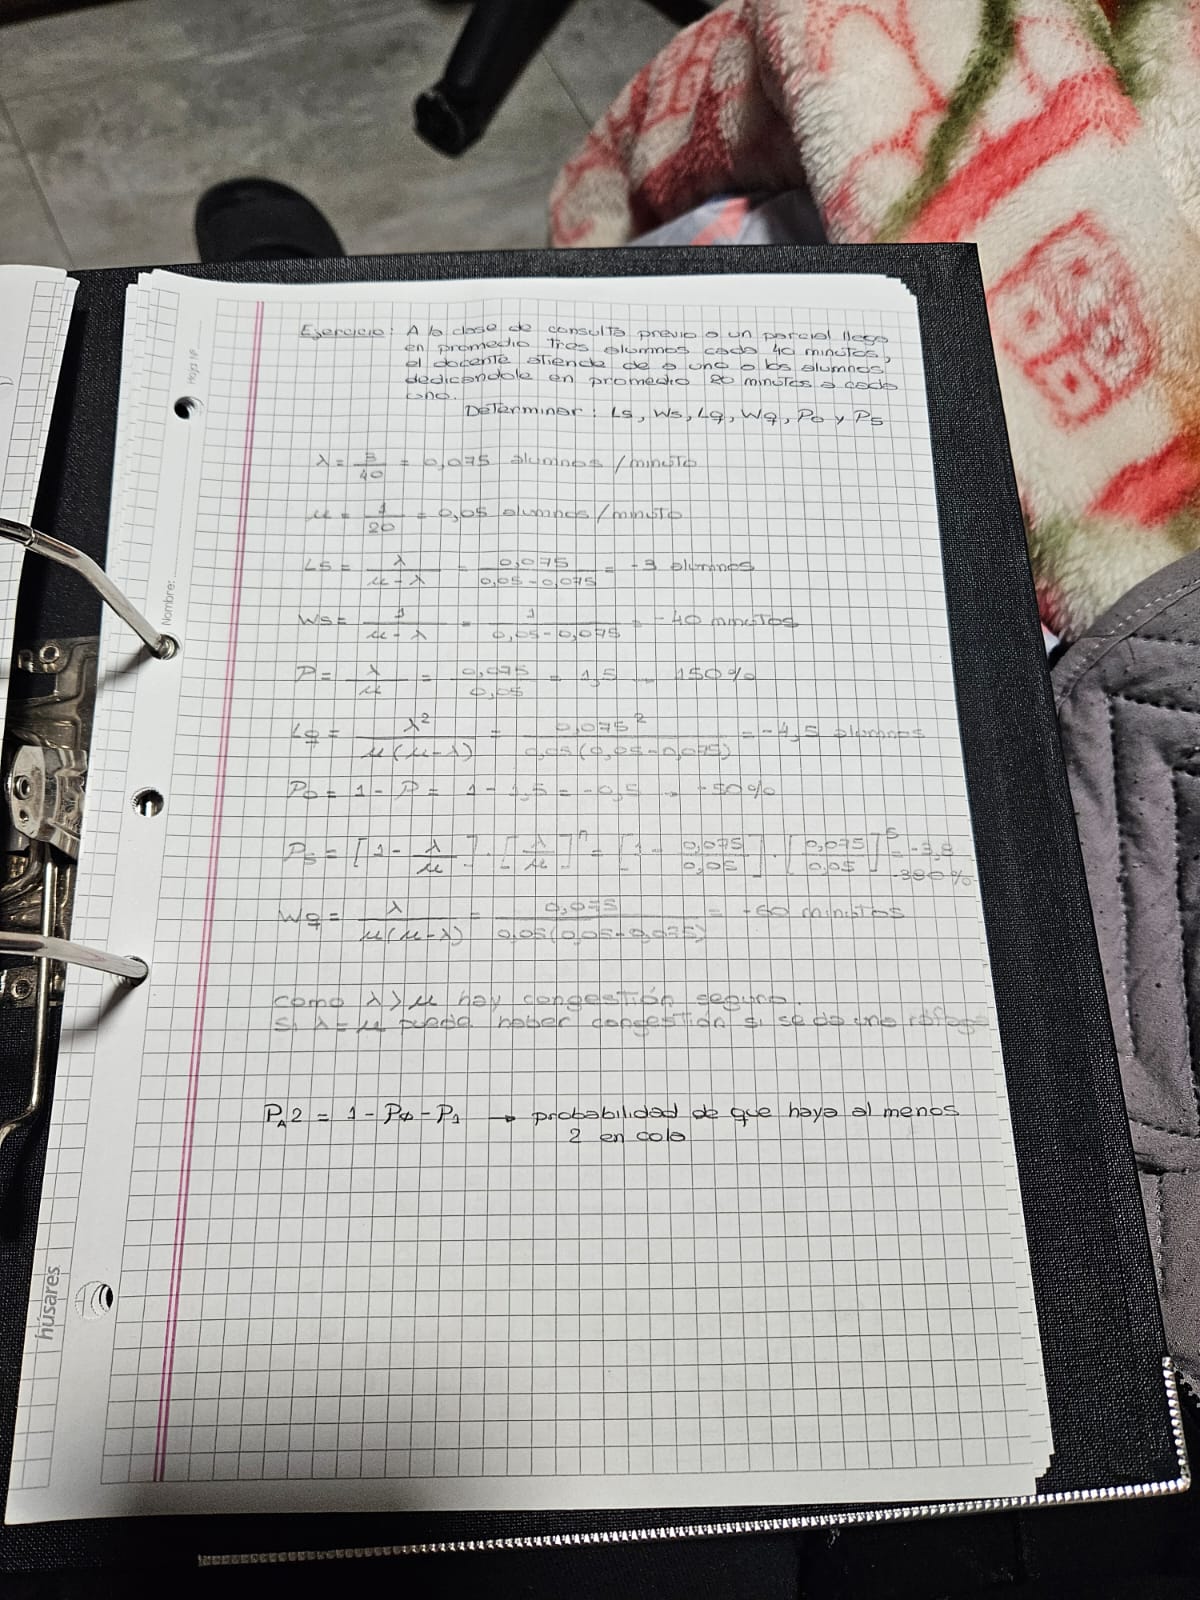 Hoja Nº
Nombre:
húsares
Ejercicio: A la clase de consulta previo a un parcial llega
en promedio tres alumnos cada 40 minutos,
el docente atiende de a uno a los alumnos
dedicandole en promedio 20 minutos a cada
uno.
Determinar: Ls, Ws, Lq, Wq, P0 y P5
λ = 3/40 = 0,075 alumnos/minuto
μ = 1/20 = 0,05 alumnos/minuto
Ls = λ/(μ-λ) = 0,075/(0,05-0,075) = -3 alumnos
Ws = 1/(μ-λ) = 1/(0,05-0,075) = -40 minutos
P = λ/μ = 0,075/0,05 = 1,5 → 150%
Lq = λ²/(μ(μ-λ)) = 0,075²/(0,05(0,05-0,075)) = -4,5 alumnos
P0 = 1 - P = 1 - 1,5 = -0,5 → -50%
P5 = [1 - λ/μ] · [λ/μ]ⁿ = [1 - 0,075/0,05] · [0,075/0,05]⁵ = -3,8
-380%
Wq = λ/(μ(μ-λ)) = 0,075/(0,05(0,05-0,075)) = -60 minutos
como λ > μ hay congestión seguro.
Si λ = μ puede haber congestión si se da una ráfaga
PA2 = 1 - Pφ - P1 → probabilidad de que haya al menos
2 en cola